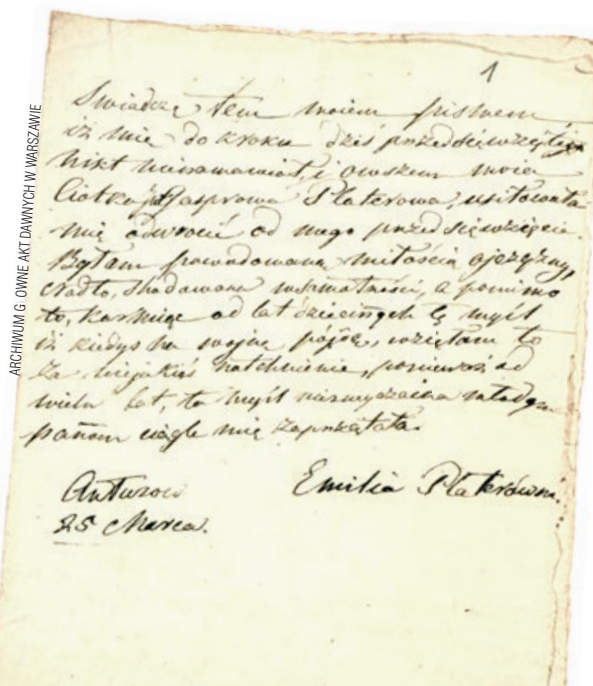 ARCHIWUM G OWNE AKT DAWNYCH W WARSZAWIE
1
Swiadczę tem moiem pismem
iż mię do kroku dziś przedsięwziętego
nikt nienamawiał, i owszem moia
Ciotka Kasprowa Platerowa, usiłowała
mię odwrocić od mego przedsięwzięcia.
Byłam powodowana miłością ojczyzny,
to, karmiąc od lat dziecinnych tę myśl
iż kiedyś na wojnę pójdę, wzięłam to
za niejakiś natchnienie, ponieważ od
wielu lat, ta myśl niezwyczaina młodym
pannom ciągle mię zaprzątała.
Antuzow
Emilia Platerówna.
25 Marca.